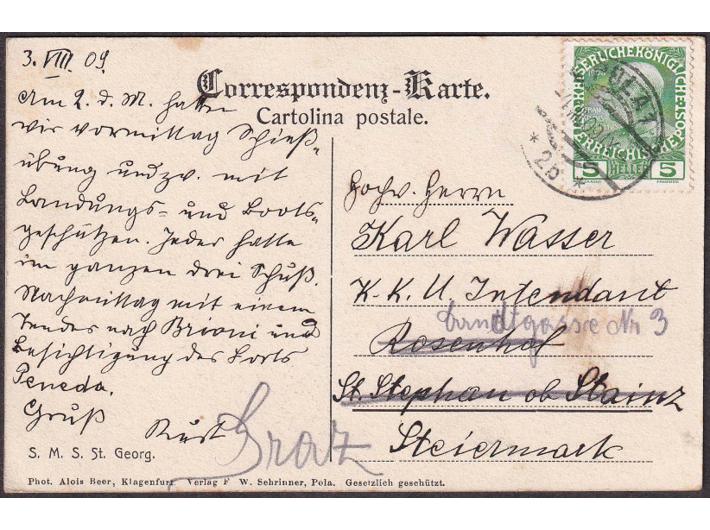 3. VIII 09.
Am 2. d. M. hatten
wir vormittag Schieß-
übung und zw. mit
Landungs- und Boots-
geschützen. Jeder hatte
im ganzen drei Schuß.
Nachmittag mit einem
Tender nach Brioni und
Besichtigung des Forts
Peneda.
Gruß
Correspondenz-Karte.
Cartolina postale.
KAISERLICHE KÖNIGLICHE ÖSTERREICHISCHE
5 HELLER 5
POLA 1
* 2b *
Hochw. Herrn
Karl Wasser
K. K. U. Intendant
Landtgasse Nr 3
Rosenhof
St. Stephan ob Stainz
Graz
Steiermark
S. M. S. St. Georg.
Phot. Alois Beer, Klagenfurt. Verlag F. W. Schrinner, Pola. Gesetzlich geschützt.